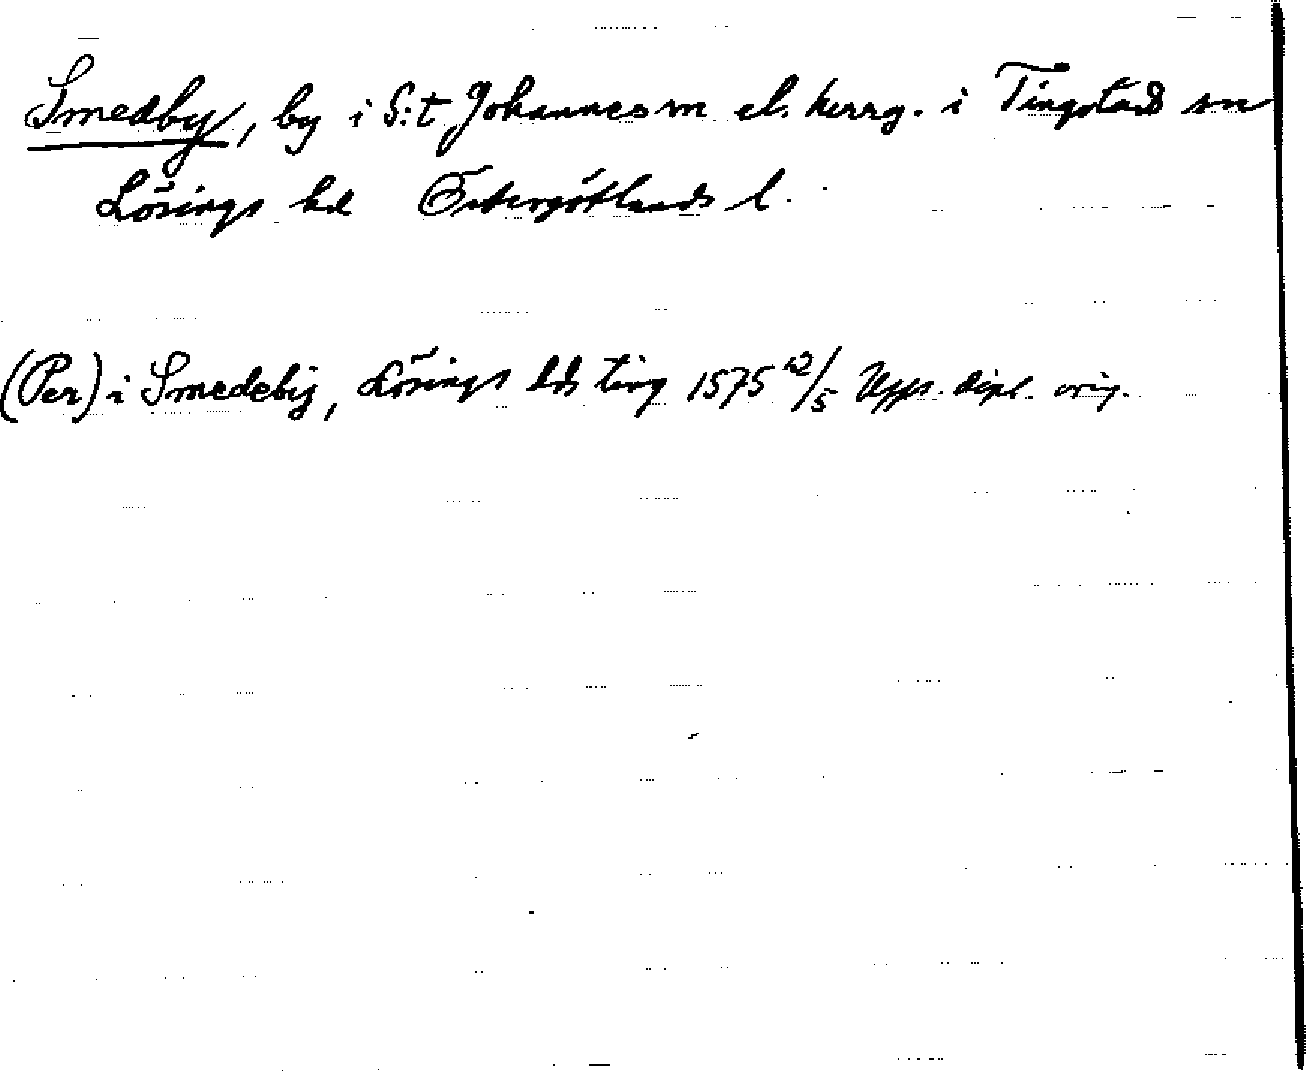 Smedby, by i S:t Johannes sn el. herrg. i Tingstad sn
Lösings hd Östergötlands l.
(Per) i Smedebij, Lösings hds ting 1575 12/5 Upps. dipl. orig.